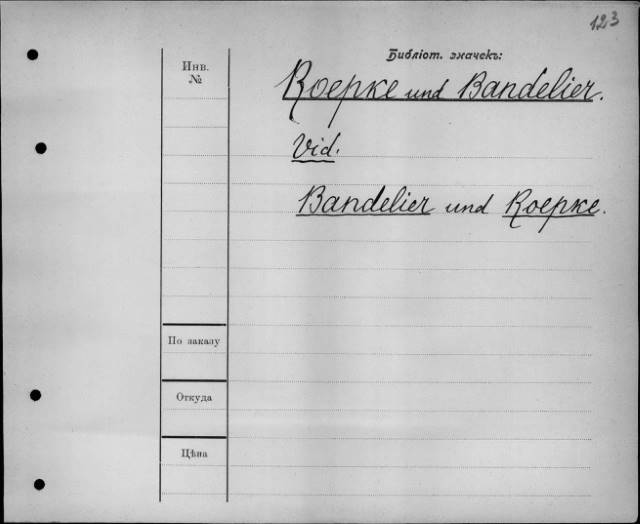 123
Библіот. значекъ:
Инв.
№
Roepke und Bandelier.
Vid.
Bandelier und Roepke.
По заказу
Откуда
Цѣна